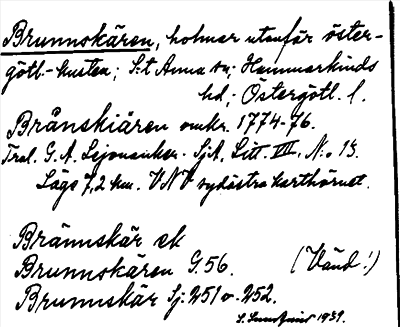 Brunnskären, holmar utanför öster-
götl.-kusten; S:t Anna sn; Hammarkinds
hd; Östergötl. l.
Brånskiären omkr. 1774-76.
G. A. SjA, Litt. VII, N:o 13.
Läge 7,2 km. VNV sydöstra karthörnet.
Brännskär ek
Brunnskären G. 56. (Vänd!)
Brunnskär Sj. 251 o. 252.
1939.